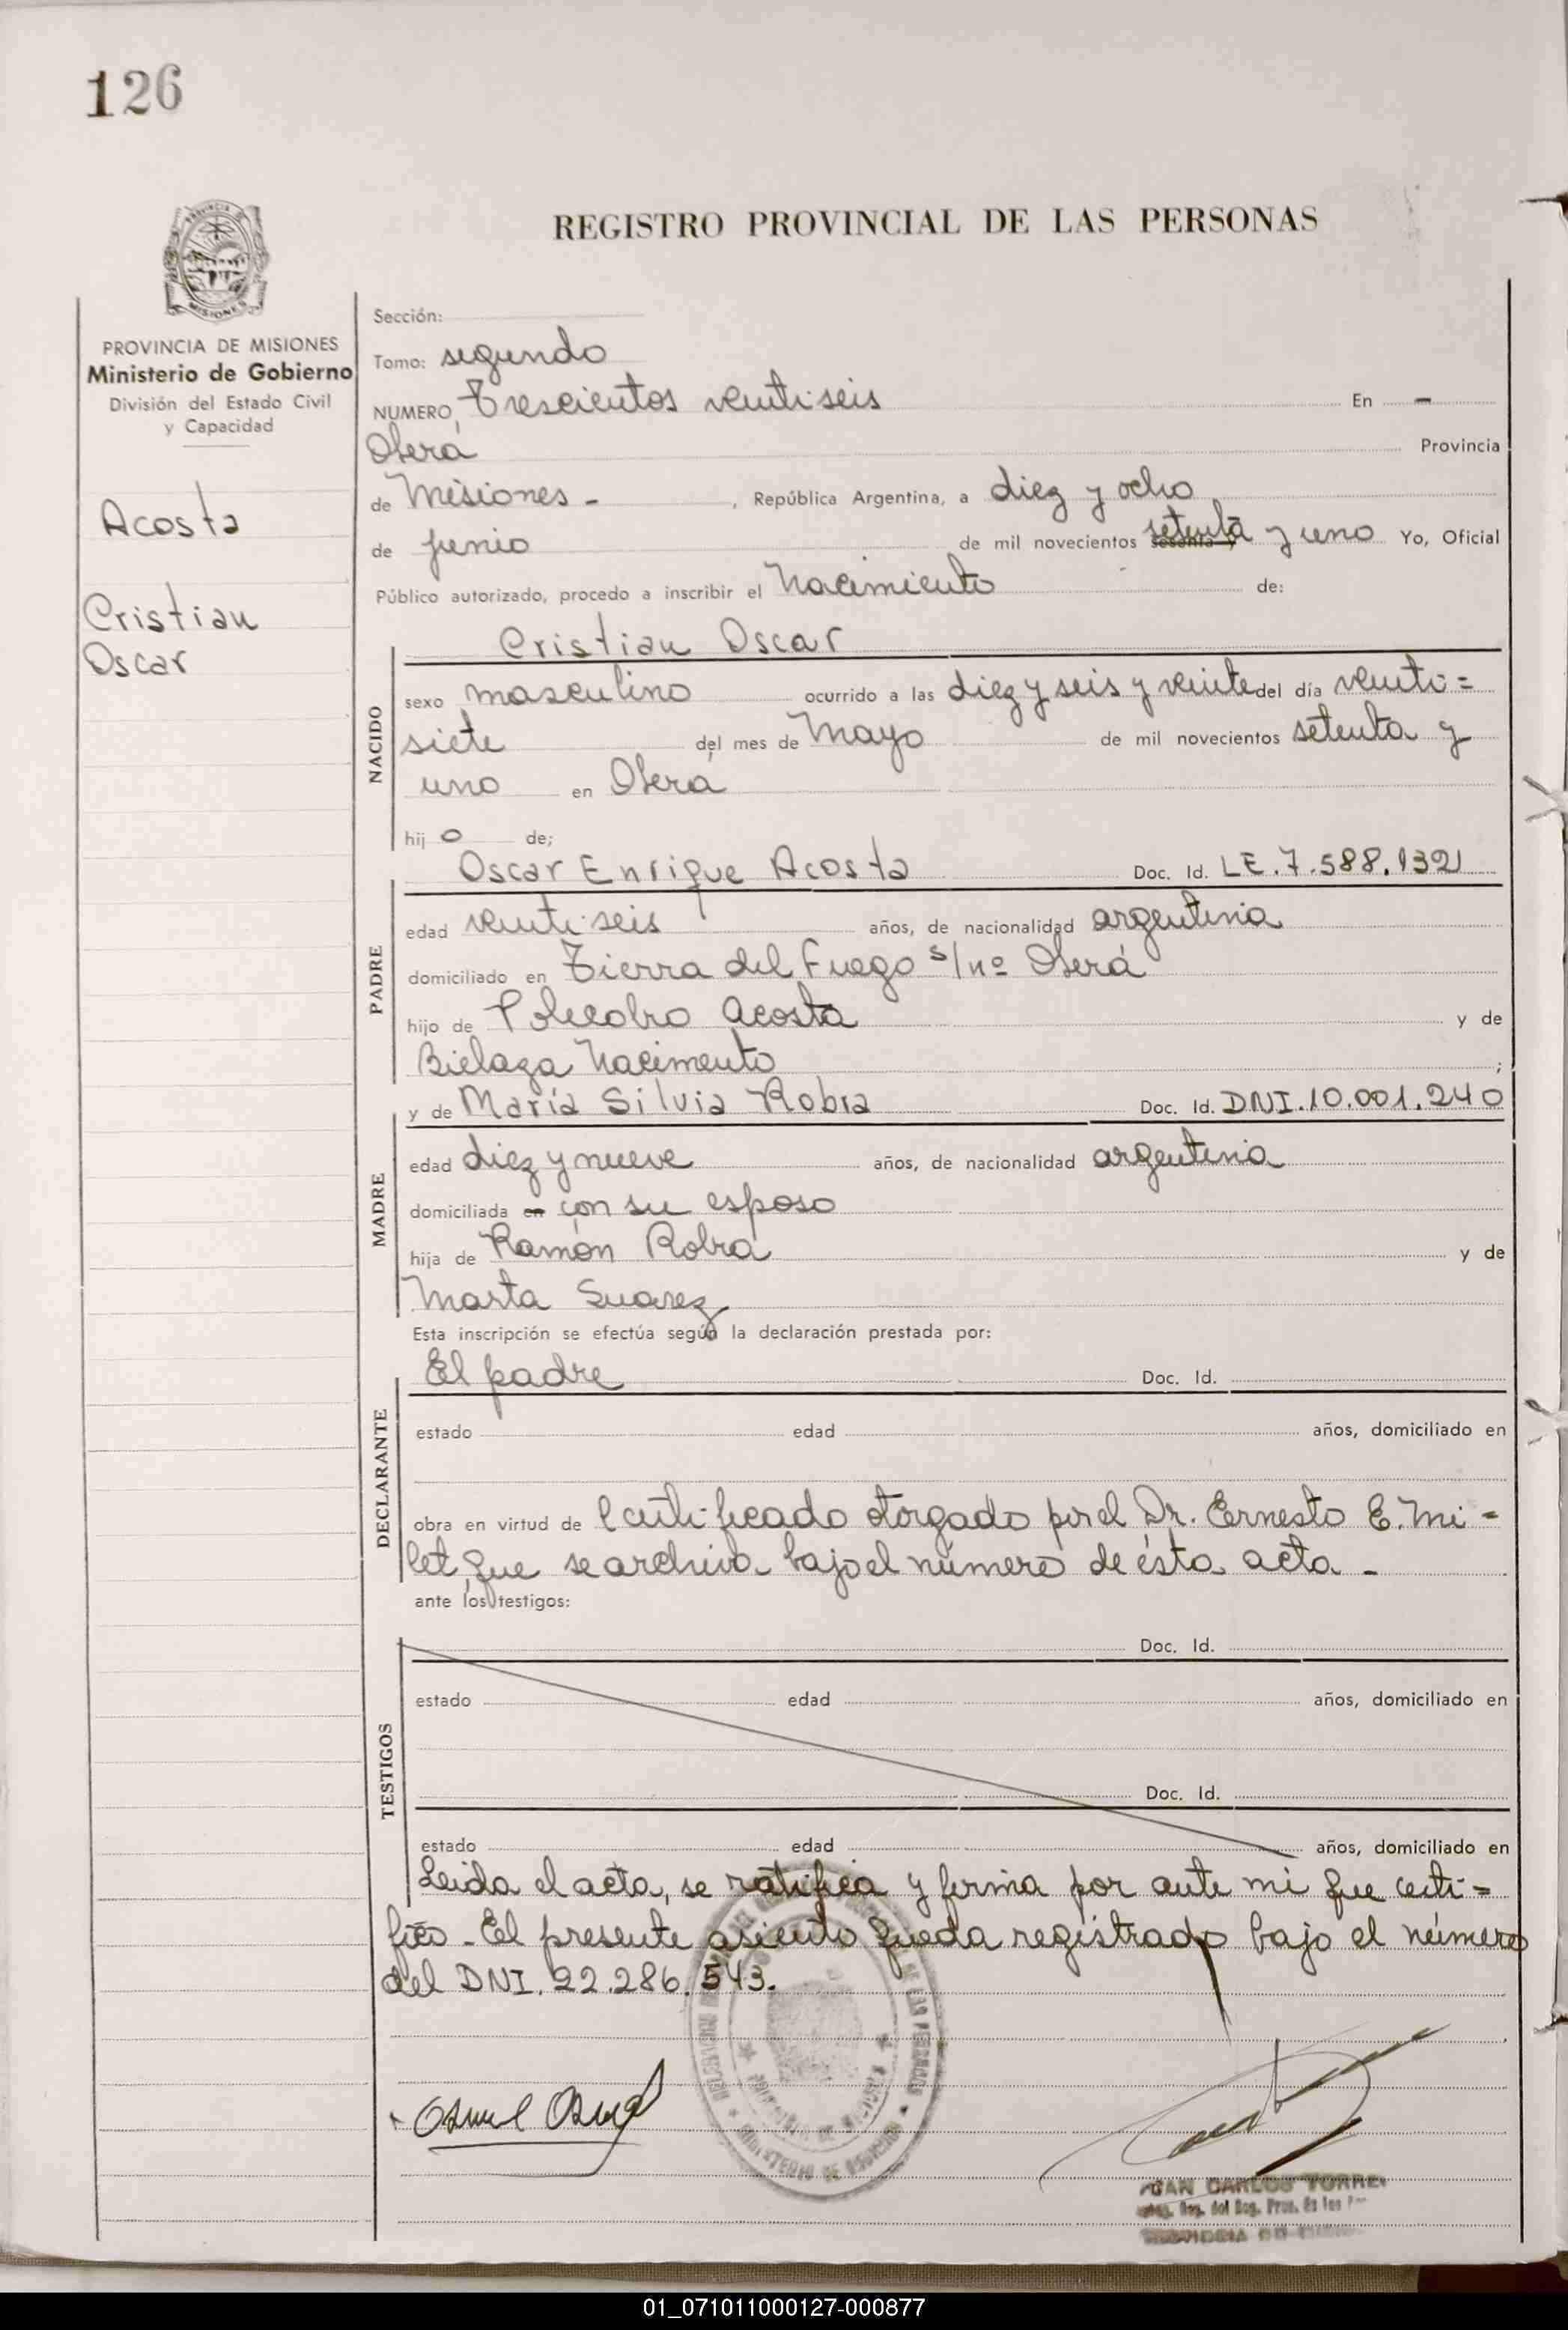 126
REGISTRO PROVINCIAL DE LAS PERSONAS
PROVINCIA DE MISIONES
Ministerio de Gobierno
División del Estado Civil
y Capacidad
Acosta
Cristian
Oscar
Sección:
Tomo: segundo
NUMERO Trescientos veinti seis En -
Oberá Provincia
de Misiones - , República Argentina, a diez y ocho
de junio de mil novecientos setenta y uno Yo, Oficial
Público autorizado, procedo a inscribir el Nacimiento de:
Cristian Oscar
NACIDO
sexo masculino ocurrido a las diez y seis y veinte del día veinti=
siete del mes de Mayo de mil novecientos setenta y
uno en Oberá
hij o de;
Oscar Enrique Acosta Doc. Id. LE. 7.588.132
PADRE
edad veinti seis años, de nacionalidad argentina
domiciliado en Tierra del Fuego s/nº Oberá
hijo de Acosta y de
Nacimento ;
y de María Silvia Robra Doc. Id. DNI. 10.001.240
MADRE
edad diez y nueve años, de nacionalidad argentina
domiciliada en con su esposo
hija de Ramón Robra y de
Marta Suarez
Esta inscripción se efectúa según la declaración prestada por:
El padre Doc. Id.
DECLARANTE
estado edad años, domiciliado en
obra en virtud de Certificado otorgado por el Dr. Ernesto E. Mi-
let, que se archiva bajo el número de ésta acta -
ante los testigos:
TESTIGOS
Doc. Id.
estado edad años, domiciliado en
Doc. Id.
estado edad años, domiciliado en
Leida el acta, se ratifica y firma por ante mi que certi=
fico - El presente asiento queda registrado bajo el número
del DNI. 22.286.543.
JUAN CARLOS TORRE
01_071011000127-000877